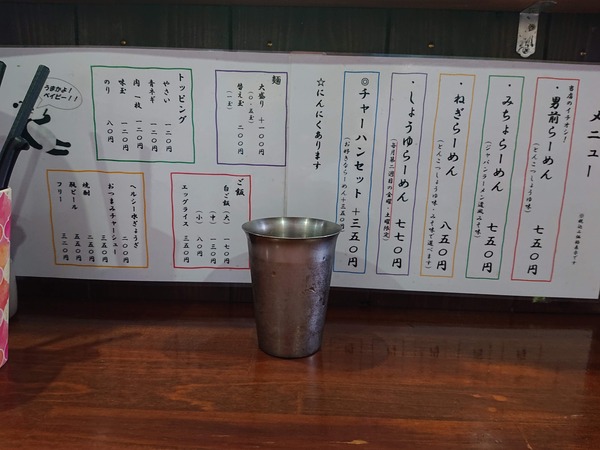 メニュー
◎税込み価格表です
当店のイチオシ！
・男前らーめん 七五〇円
（とんこつしょうゆ味）
・みちょらーめん 七五〇円
（ジャパンラーメン道風ユイ味）
・ねぎらーめん 八五〇円
・しょうゆらーめん 七七〇円
（毎月第二週目の金曜・土曜限定）
◎チャーハンセット ＋三五〇円
（お好きならーめん＋三五〇円）
☆にんにくあります
麺
大盛り ＋一〇〇円
（一〇．五玉）
替え玉 二〇〇円
（一玉）
ご飯
白ご飯（大） 一七〇円
（中） 一三〇円
（小） 八〇円
エッグライス 三五〇円
トッピング
やさい 一二〇円
青ネギ 一二〇円
肉一枚 一二〇円
味玉 一二〇円
のり 八〇円
ヘルシー水ぎょうざ 二〇〇円
おつまみチャーシュー 三五〇円
焼酎 二五〇円
瓶ビール 五五〇円
フリー 三二〇円
うまかよ！
ベイビー！！